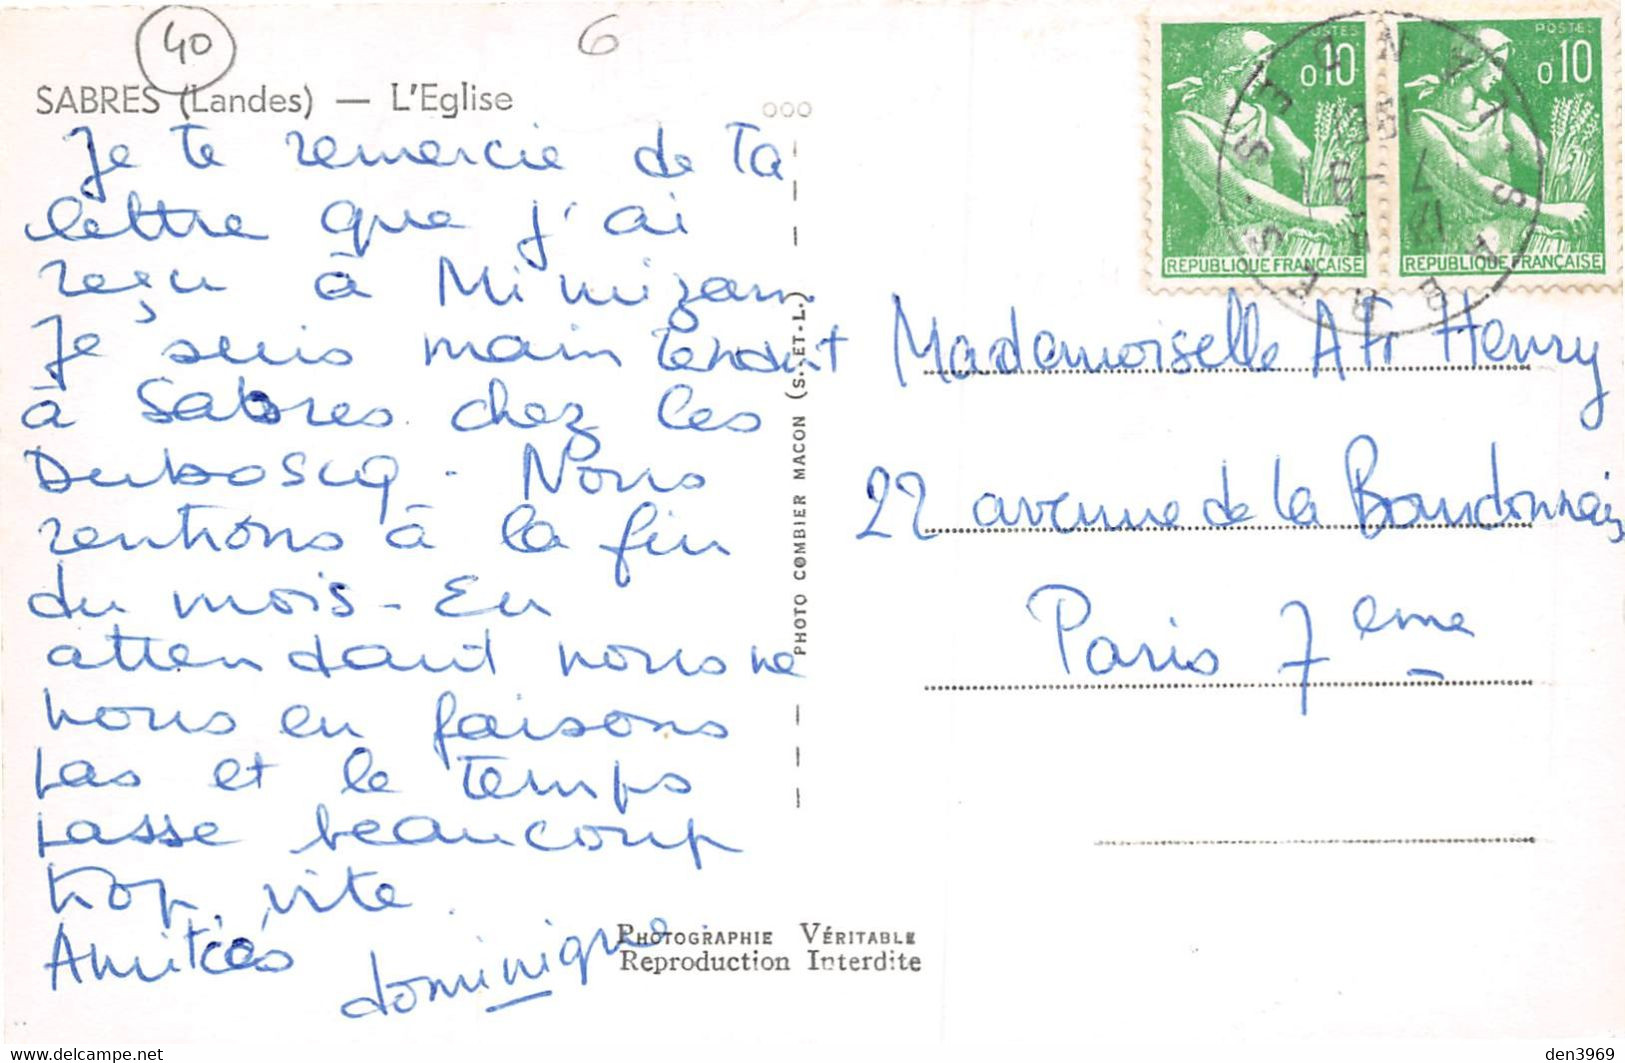 40
6
SABRES (Landes) — L'Eglise
Je te remercie de ta
lettre que j'ai
reçu à Mimizan
Je suis maintenant
à Sabres chez les
Duboscq. Nous
rentrons à la fin
du mois - En
attendant nous ne
nous en faisons
pas et le temps
passe beaucoup
trop vite.
Amitiés
dominique
PHOTO COMBIER MACON (S.-ET-L.)
PHOTOGRAPHIE VÉRITABLE
Reproduction Interdite
POSTES
0,10
REPUBLIQUE FRANÇAISE
POSTES
0,10
REPUBLIQUE FRANÇAISE
SABRES
Mademoiselle A Fr Henry
22 avenue de la Bourdonnais
Paris 7eme
den3969